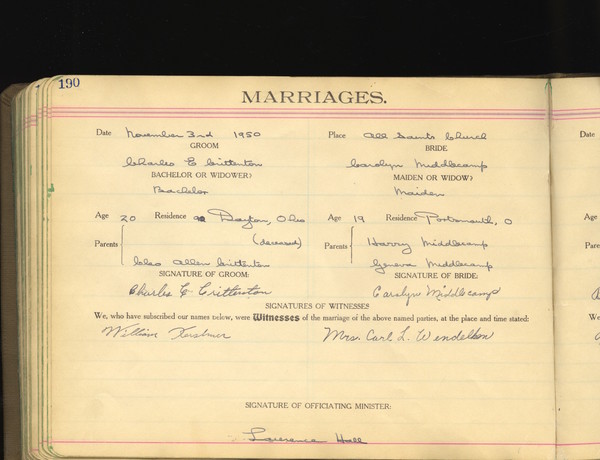 190
MARRIAGES.
Date November 3rd 1950 Place All Saints Church
GROOM BRIDE
Charles E Crittenton Carolyn Middlecamp
BACHELOR OR WIDOWER? MAIDEN OR WIDOW?
Bachelor Maiden
Age 20 Residence Dayton, Ohio Age 19 Residence Portsmouth, O
Parents (deceased) Parents Harry Middlecamp
Cleo Allen Crittenton Geneva Middlecamp
SIGNATURE OF GROOM: SIGNATURE OF BRIDE:
Charles E Crittenton Carolyn Middlecamp
SIGNATURES OF WITNESSES
We, who have subscribed our names below, were Witnesses of the marriage of the above named parties, at the place and time stated:
William Kershner Mrs. Carl L. Wendelken
SIGNATURE OF OFFICIATING MINISTER:
Lawrence Hall
Date
Age
Pare
We